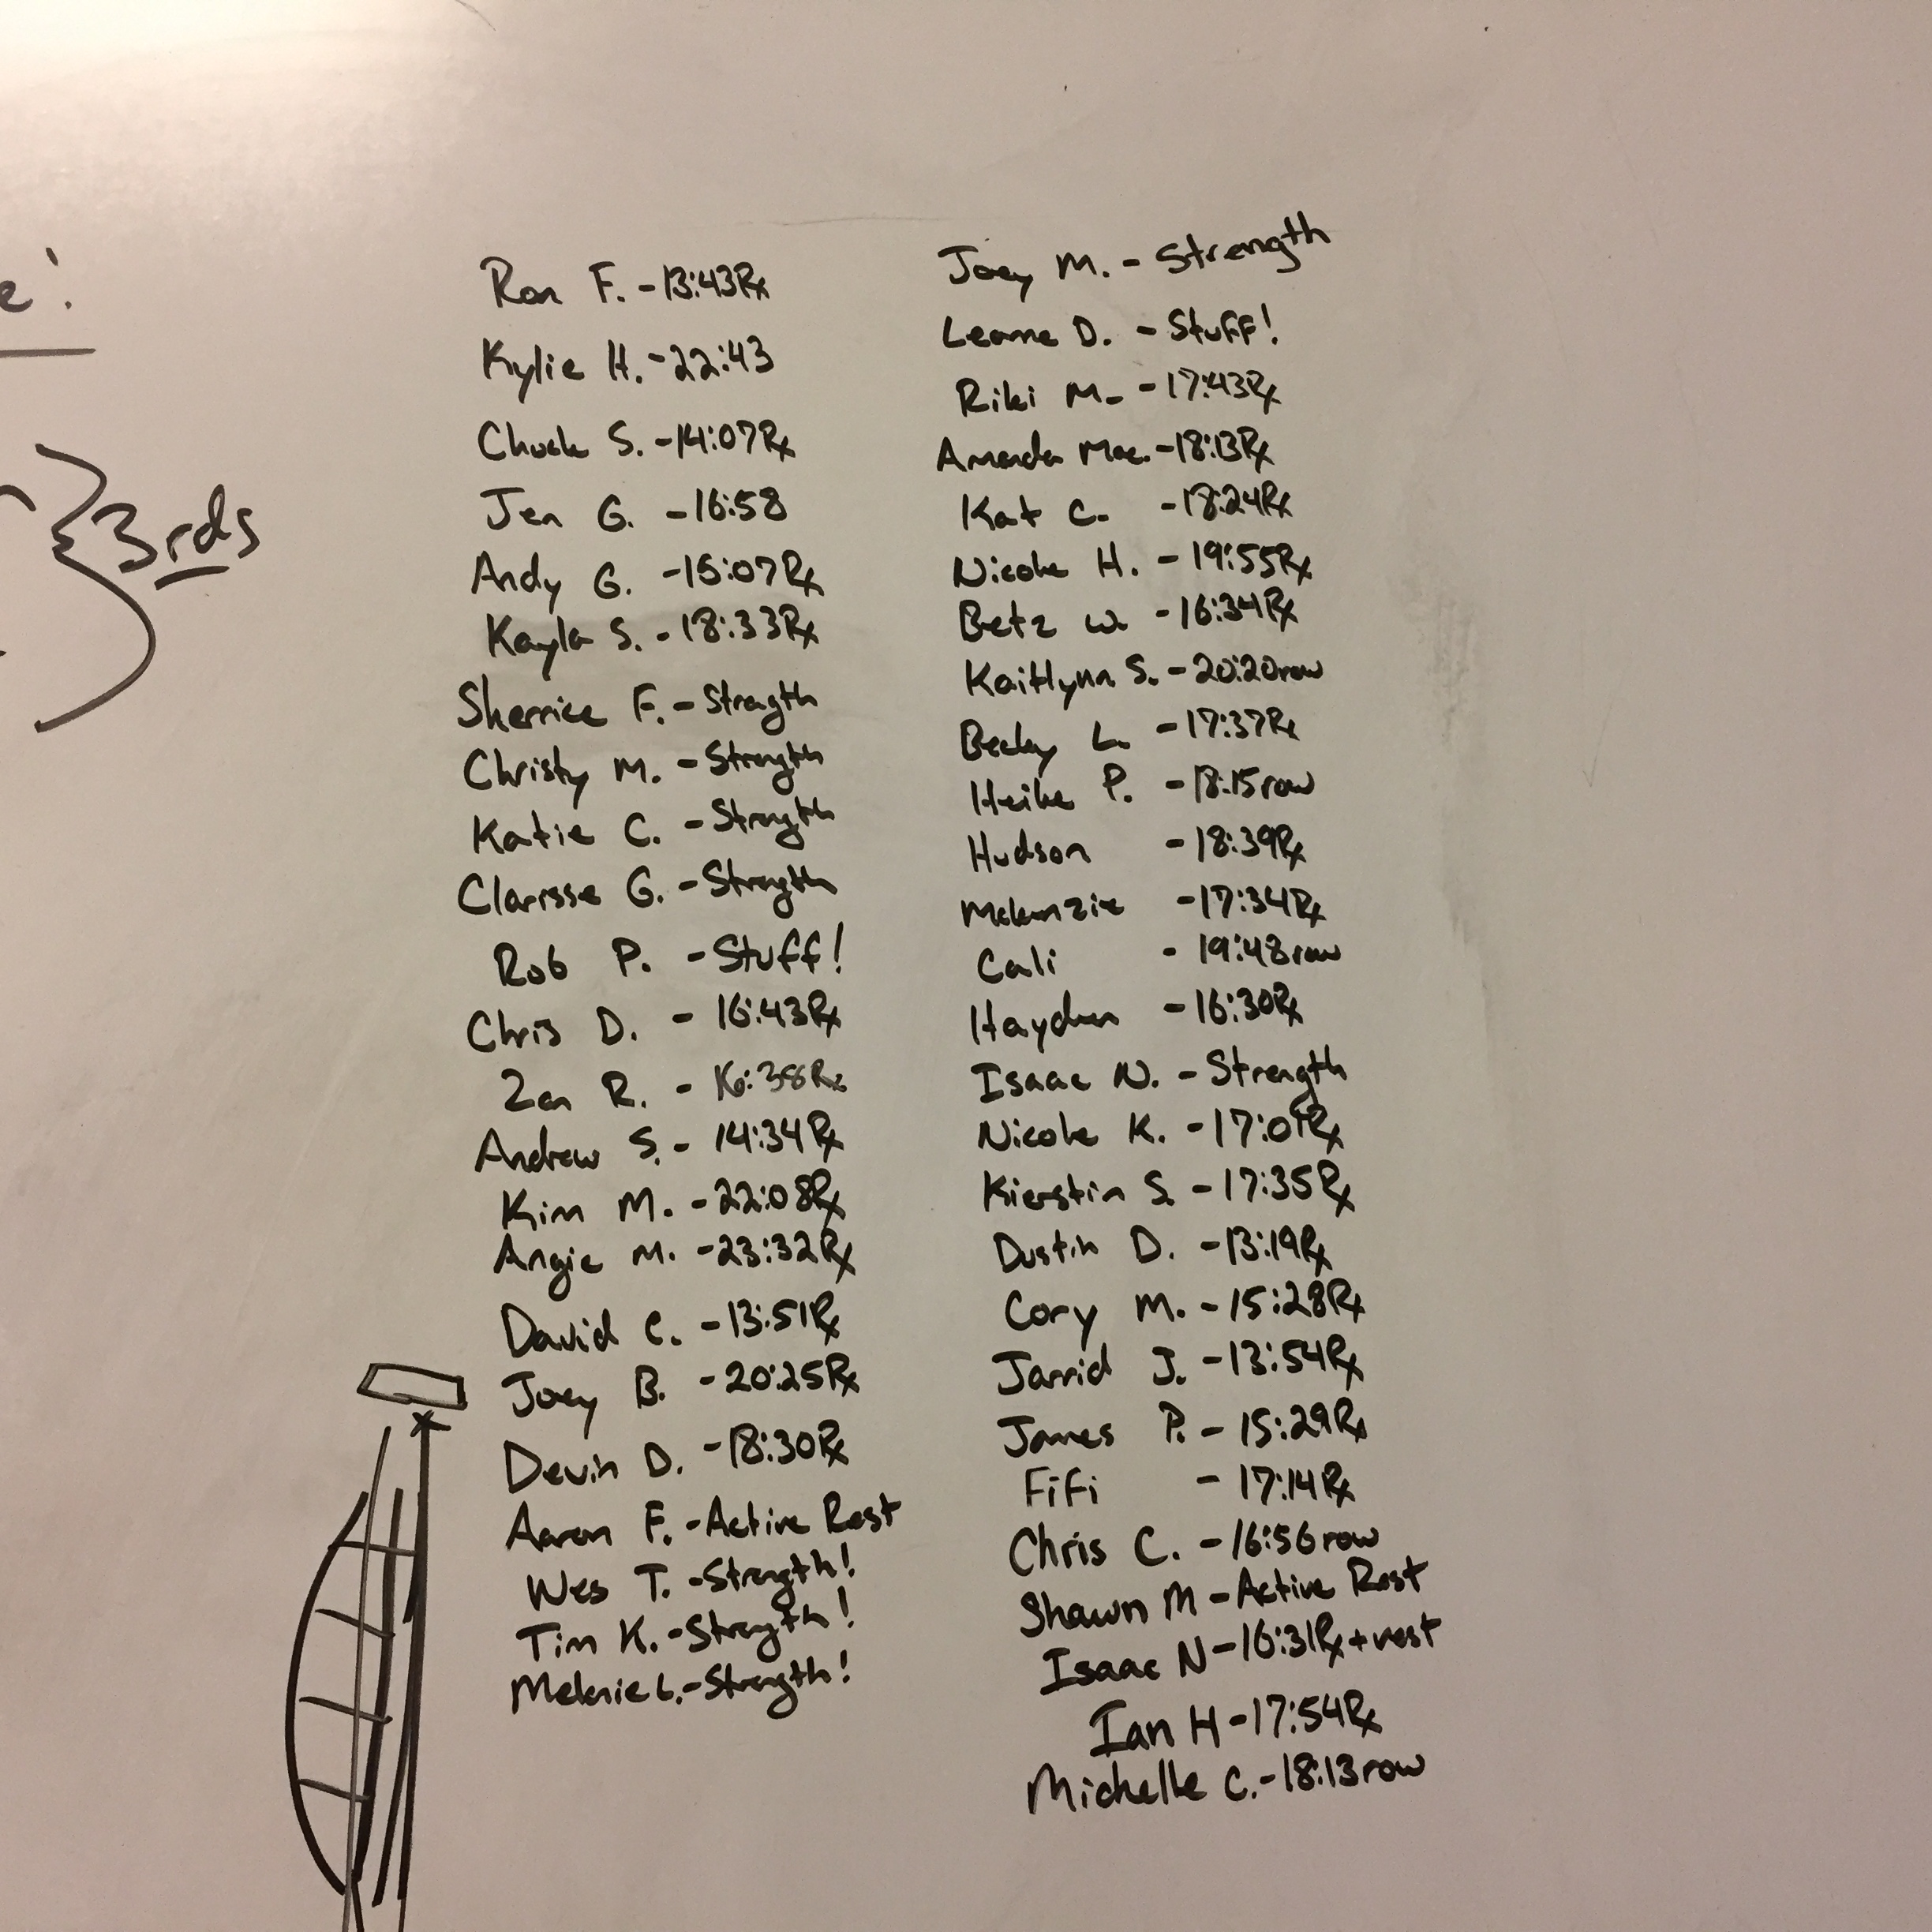 e!
3rds
Ron F. - 13:43Rx
Kylie H. - 22:43
Chuck S. - 14:07Rx
Jen G. - 16:58
Andy G. - 15:07Rx
Kayla S. - 18:33Rx
Sherrice F. - Strength
Christy M. - Strength
Katie C. - Strength
Clarisse G. - Strength
Rob P. - Stuff!
Chris D. - 16:43Rx
Zan R. - 16:38Rx
Andrew S. - 14:34Rx
Kim M. - 22:08Rx
Angie M. - 23:32Rx
David C. - 13:51Rx
Joey B. - 20:25Rx
Devin D. - 18:30Rx
Aaron F. - Active Rest
Wes T. - Strength!
Tim K. - Strength!
Melanie L. - Strength!
Joey M. - Strength
Leanne D. - Stuff!
Riki M. - 17:43Rx
Amanda Mac. - 18:13Rx
Kat C. - 18:24Rx
Nicole H. - 19:55Rx
Betz W. - 16:34Rx
Kaitlynn S. - 20:20row
Becky L. - 17:37Rx
Heike P. - 18:15row
Hudson - 18:39Rx
Mckenzie - 17:34Rx
Cali - 19:48row
Hayden - 16:30Rx
Isaac N. - Strength
Nicole K. - Rx
Kierstin S. - 17:35Rx
Dustin D. - 13:19Rx
Cory M. - 15:28Rx
Jarrid J. - 13:54Rx
James P. - 15:29Rx
Fifi - 17:14Rx
Chris C. - 16:56row
Shawn M - Active Rest
Isaac N - 16:31Rx + rest
Ian H - 17:54Rx
Michelle C. - 18:13row